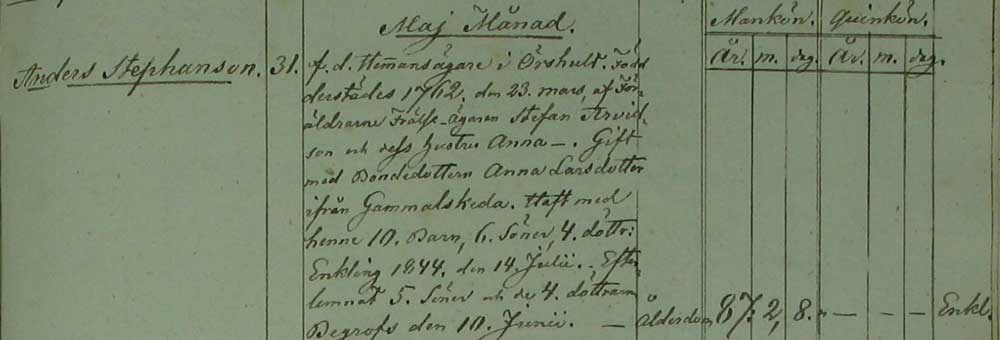 Maj Månad.
Mankön. Quinkön.
År. m. dag. År. m. dag.
Anders Stephanson. 31. f.d. Hemansägare i Örshult. Född
derstädes 1762. den 23. mars, af För-
äldrarne Frälse-ägaren Stefan Arvid-
son och dess hustru Anna —. Gift
med Bondedottern Anna Larsdotter
ifrån Gammalskeda. Haft med
henne 10. Barn, 6. Söner, 4. döttr:
Enkling 1844. den 14. Julii. Efter-
lemnat 5. Söner och de 4. döttrarne
Begrofs den 10. Junii. — Ålderdom 87. 2, 8. „ — — — Enkl.